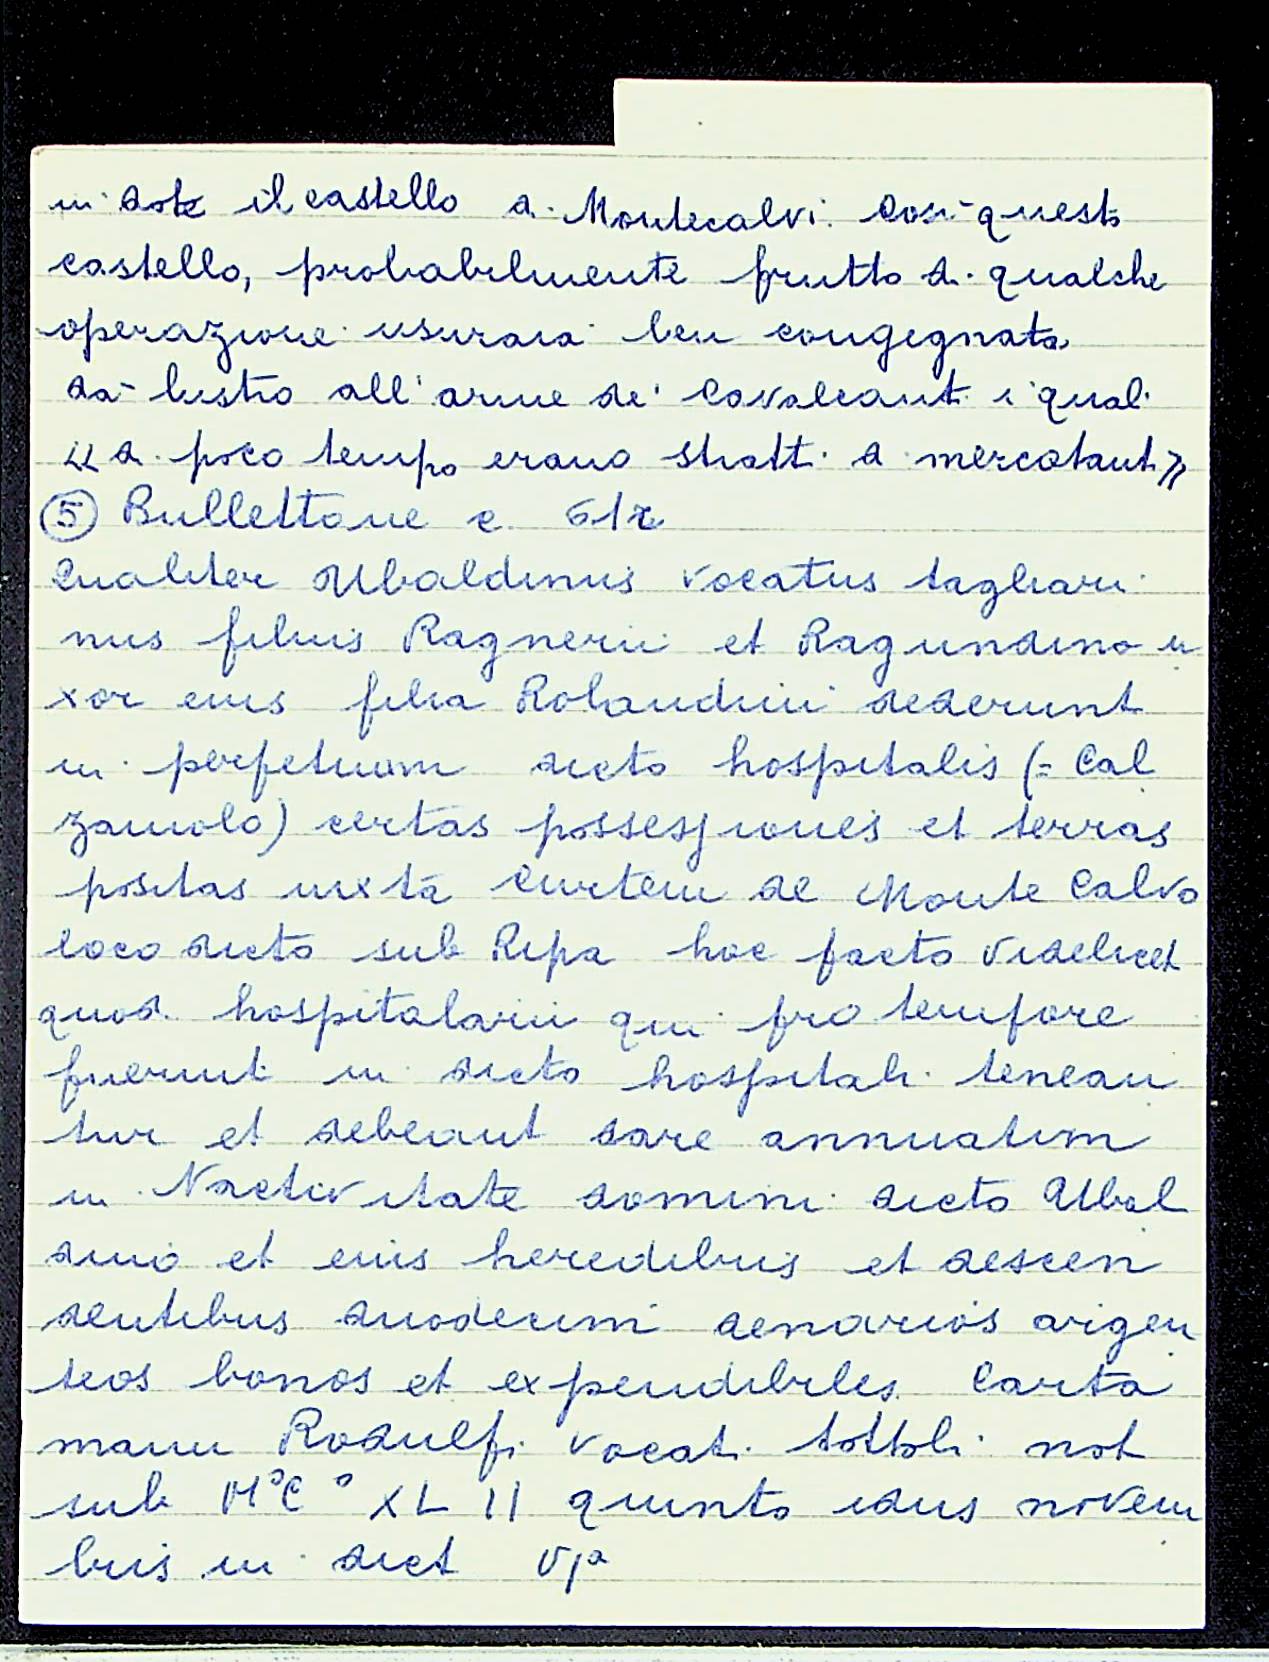 in dote il castello di Montecalvi. Così questo
castello, probabilmente frutto di qualche
operazione usuraia ben congegnata
dà lustro all'arme de' Cavalcanti i quali
"di poco tempo erano stratti di mercatanti"
(5) Bullettone c. 61r
Qualiter Ubaldinus vocatus tagliari
nus filius Ragnerii et Ragundina u
xor eius filia Rolandini dederunt
in perpetuum dicto hospitalis (= Cal
zaiuolo) certas possessiones et terras
positas iuxta Curtem de Monte Calvo
loco dicto sub Ripa hoc facto videlicet
quod hospitalarii qui pro tempore
fuerint in dicto hospitali teneau
tur et debeant dare annuatim
in Nactivitate domini dicto Ubal
dino et eius heredibus et descen
dentibus duodecim denarios argen
teos bonos et expendibiles Carta
manu Rodulfi vocati tottoli not
sub M°C° XL II quinto idus novem
bris in dict VIª